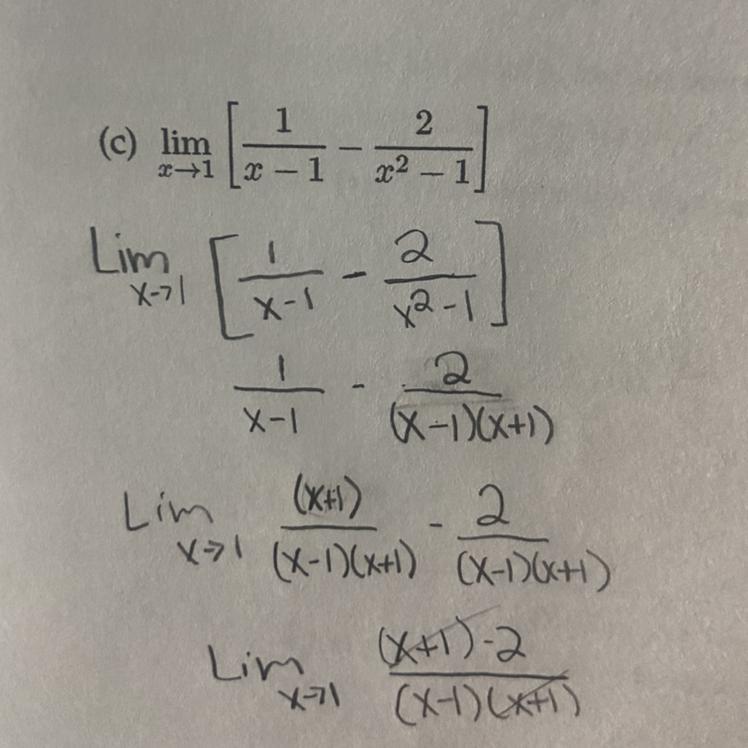 (c) lim x→1 [ 1/(x − 1) − 2/(x² − 1) ]
Lim x→1 [ 1/(x-1) - 2/(x²-1) ]
1/(x-1) - 2/((x-1)(x+1))
Lim x→1 (x+1)/((x-1)(x+1)) - 2/((x-1)(x+1))
Lim x→1 ((x+1)-2)/((x-1)(x+1))